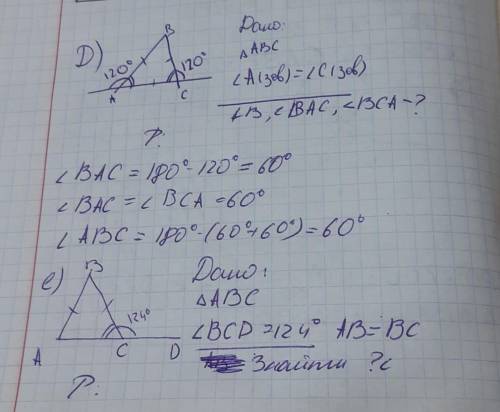 D)
B
120° 120°
A C
Дано:
△ABC
∠A(зов)=∠C(зов)
∠B, ∠BAC, ∠BCA-?
Р:
∠BAC = 180°-120°=60°
∠BAC = ∠BCA =60°
∠ABC = 180°-(60°+60°)=60°
e)
B
124°
A C D
Дано:
△ABC
∠BCD =124° AB=BC
Знайти ?с
Р: